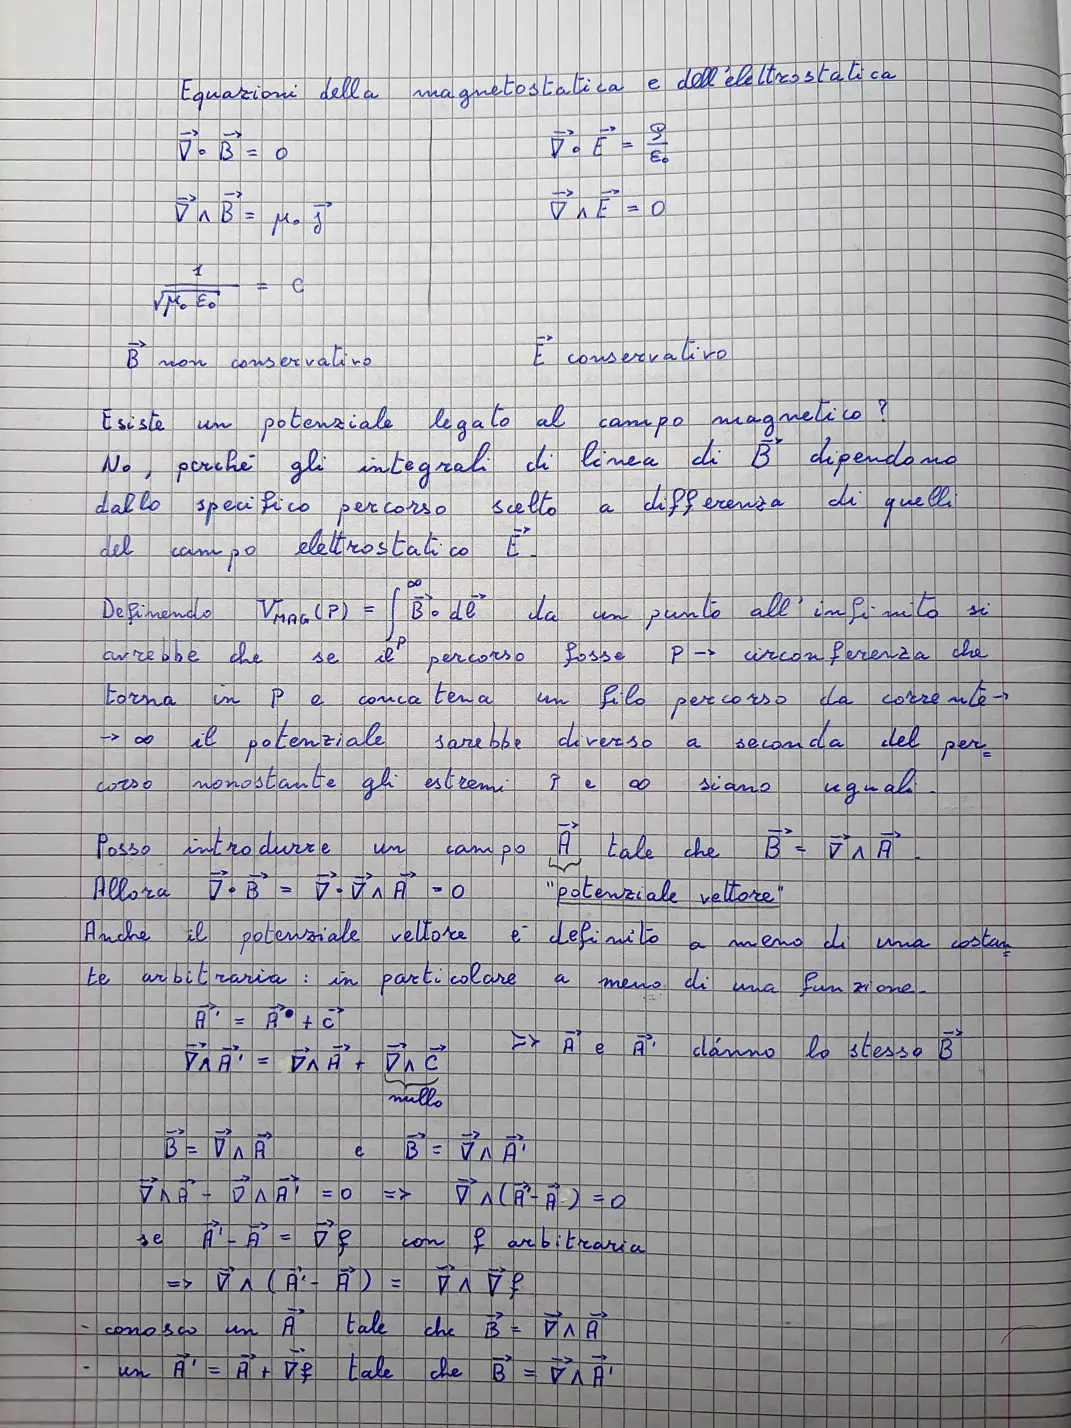 Equazioni della magnetostatica e dell'elettrostatica
∇⃗ · B⃗ = 0    ∇⃗ · E⃗ = ρ/ε₀
∇⃗ ∧ B⃗ = μ₀ J⃗    ∇⃗ ∧ E⃗ = 0
1/√(μ₀ ε₀) = c
B⃗ non conservativo    E⃗ conservativo
Esiste un potenziale legato al campo magnetico?
No, perché gli integrali di linea di B⃗ dipendono
dallo specifico percorso scelto a differenza di quelli
del campo elettrostatico E⃗.
Definendo V_MAG(P) = ∫_P^∞ B⃗ · dl⃗ da un punto all'infinito si
avrebbe che se il percorso fosse P → circonferenza che
torna in P e concatena un filo percorso da corrente →
→ ∞ il potenziale sarebbe diverso a seconda del per=
corso nonostante gli estremi P e ∞ siano uguali.
Posso introdurre un campo A⃗ tale che B⃗ = ∇⃗ ∧ A⃗.
Allora ∇⃗ · B⃗ = ∇⃗ · ∇⃗ ∧ A⃗ = 0    "potenziale vettore"
Anche il potenziale vettore è definito a meno di una costan=
te arbitraria: in particolare a meno di una funzione.
A⃗' = A⃗ + c⃗
∇⃗ ∧ A⃗' = ∇⃗ ∧ A⃗ + ∇⃗ ∧ c⃗    => A⃗ e A⃗' dánno lo stesso B⃗
nullo
B⃗ = ∇⃗ ∧ A⃗    e    B⃗ = ∇⃗ ∧ A⃗'
∇⃗ ∧ A⃗ - ∇⃗ ∧ A⃗' = 0 => ∇⃗ ∧ (A⃗' - A⃗) = 0
se A⃗' - A⃗ = ∇⃗ f con f arbitraria
=> ∇⃗ ∧ (A⃗' - A⃗) = ∇⃗ ∧ ∇⃗ f
- conosco un A⃗ tale che B⃗ = ∇⃗ ∧ A⃗
- un A⃗' = A⃗ + ∇⃗ f tale che B⃗ = ∇⃗ ∧ A⃗'